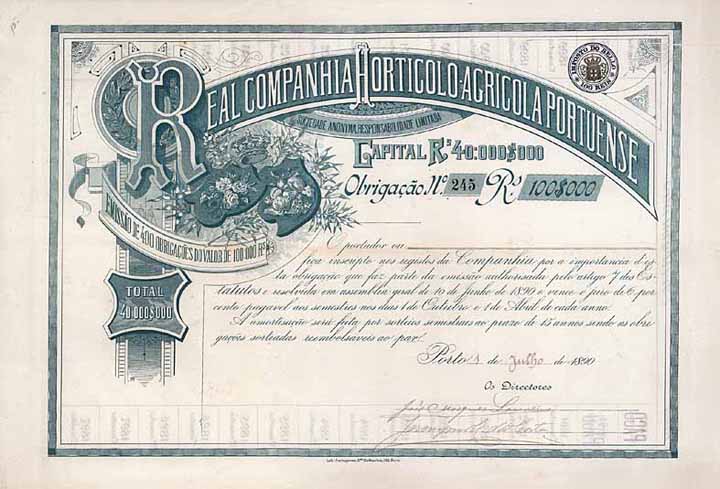 REAL COMPANHIA HORTICOLO-AGRICOLA PORTUENSE
IMPOSTO DO SELLO
100 REIS
SOCIEDADE ANONYMA, RESPONSABILIDADE LIMITADA
CAPITAL Rs 40:000$000
Obrigação, No. 245 Rs. 100$000
EMISSÃO DE 400 OBRIGAÇÕES DO VALOR DE 100:000 REIS
TOTAL
40:000$000
O portador ou
fica inscripto nos registos da Companhia por a importancia d'es
ta obrigação que faz parte da emissão authorisada pelo artigo 7 dos Es-
tatutos e resolvida em assembleia geral de 19 de Junho de 1890 e vence o juro de 6 por
cento pagavel aos semestres nos dias 1 de Outubro e 1 de Abril de cada anno.
A amortisação será feita por sorteios semestraes ao prazo de 15 annos sendo as obri-
gações sorteadas reembolsaveis ao par.
Porto 1 de Julho de 1890
Os Directores